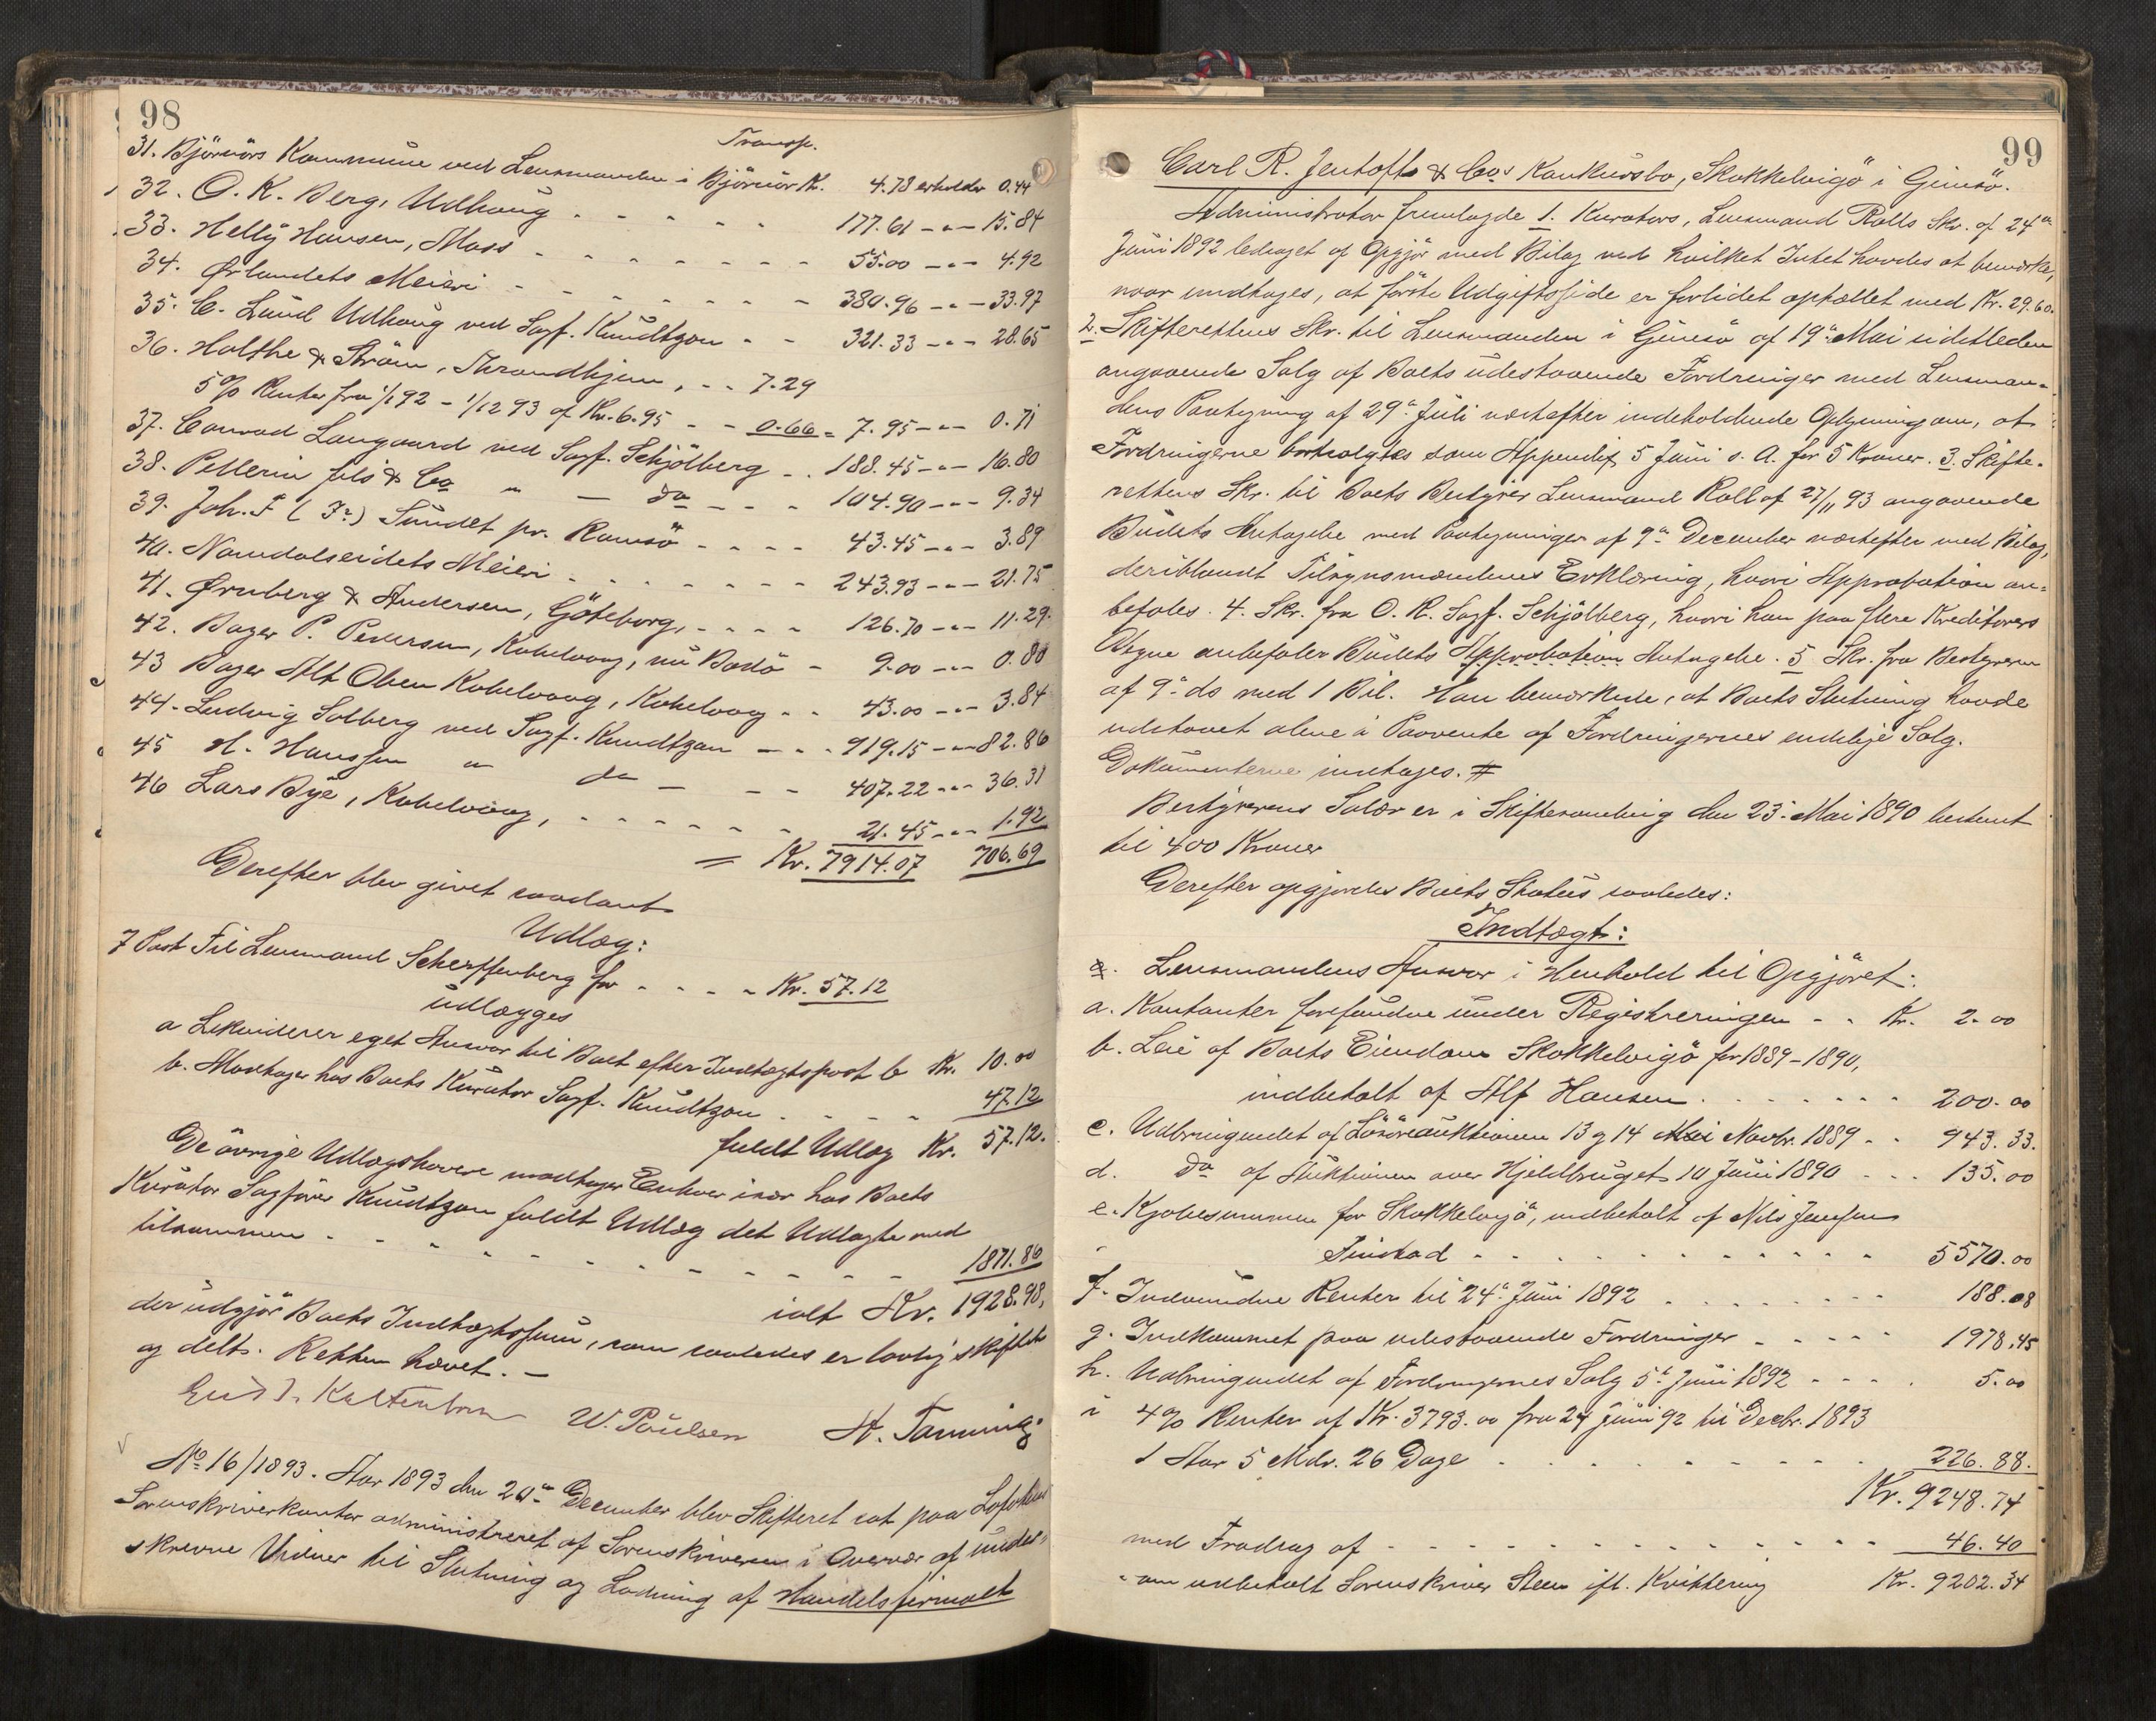 98
Transp.
31. Björnörs Kommune ved Lensmanden i Björnör Kr. 4.78 erholder 0.44
32. O. K. Berg, Udhaug - - - - - 177.61 - " - 15.84
33. Helly Hansen, Moss - - - - - - - 55.00 - " - 4.92
34. Ørlandets Meieri - - - - - - - 380.96 - " - 33.97
35. C. Lund Udhaug ved Sagf. Knudtzon - - 321.33 - " - 28.65
36. Holthe & Ström, Throndhjem, - - 7.29
5 % Renter fra 1/1 92 - 1/12 93 af Kr. 6.95 - - 0.66 = 7.95 - " - 0.71
37. Conrad Langaard ved Sagf. Schjölberg - - 188.45 - " - 16.80
38. Pellerin fils & Co " - do - - - 104.90 - " - 9.34
39. Joh. F (J?) Sundet pr. Ramsö - - - - 43.45 - " - 3.89
40. Namdalseidets Meieri - - - - - - - 243.93 - " - 21.75
41. Ørnberg & Andersen, Göteborg, - - - - 126.70 - " - 11.29.
42. Bager P. Pedersen, Kabelvaag, nu Bodö - 9.00 - " - 0.80
43 Bager Alt Olsen Kabelvaag, Kabelvaag - - 43.00 - " - 3.84
44. Ludvig Solberg ved Sagf. Knudtzon - - - 919.15 - " - 82.86
45 H. Hanssen " do - - - 407.22 - " - 36.31
46 Lars Bye, Kabelvaag, - - - - - - - 21.45 - " - 1.92
= Kr. 7914.07 706.69
Derefter blev givet saadant
Udlæg:
7 Post Til Lensmand Scherffenberg for - - - - Kr. 57.12
udlægges
a Likviderer eget Ansvar til Boet efter Indtægtspost b Kr. 10.00
b. Modtager hos Boets Kurator Sagf. Knudtzon - - - - 47.12
fuldt Udlæg Kr. 57.12.
De övrige Udlægshavere modtager Enhver især hos Boets
Kurator Sagförer Knudtzon fuldt Udlæg det Udlagte med
tilsammen - - - - - - - - - - - 1871.86
ialt Kr. 1928.98,
der udgjör Boets Indtægtssum, som saaledes er lovlig skiftet
og delt. Retten hævet. -
W. Paulsen
No 16/1893. Aar 1893 den 20de December blev Skifteret sat paa Lofotens
Sorenskriverkontor administreret af Sorenskriveren i Overvær af under-
skrevne Vidner til Slutning og Lodning af Handelsfirmaet
99
Carl R. Jentofts & Cos Konkursbo, Skokkelvigö i Gimsö.
Administrator fremlagde 1. Kurators, Lensmand Rolls Skr. af 24de
Juni 1892 ledsaget af Opgjör med Bilag ved hvilket Intet havdes at bemærke,
naar undtages, at förste Udgiftsside er forlidet optællet med Kr. 29.60.
2. Skifterettens Skr. til Lensmanden i Gimsö af 19de Mai sidstleden
angaaende Salg af Boets udestaaende Fordringer med Lensman-
dens Paategning af 29de Juli næstefter indeholdende Oplysning om, at
Fordringerne bortsolgtes som Appendix 5 Juni s. A. for 5 Kroner. 3. Skifte-
rettens Skr. til Boets Bestyrer Lensmand Roll af 27/11 93 angaaende
Budets Antagelse med Paategninger af 9de December næstefter med Bilag,
deriblandt Tilsynsmændenes Erklæring, hvori Approbation an-
befales. 4. Skr. fra O. R. Sagf. Schjölberg, hvori han paa flere Kreditorers
Vegne anbefaler Budets Approbation Antagelse. 5 Skr. fra Bestyreren
af 9de ds med 1 Bil. Han bemærkede, at Boets Slutning havde
udstaaet alene i Paavente af Fordringernes endelige Salg.
Dokumenterne indtages. #
Bestyrerens Salær er i Skiftesamling den 23de Mai 1890 bestemt
til 400 Kroner
Derefter opgjordes Boets Status saaledes:
Indtægt:
a. Lensmandens Ansvar i Henhold til Opgjöret:
a. Kontanter forefundne under Registreringen - - Kr. 2.00
b. Leie af Boets Eiendom Skokkelvigö for 1889-1890,
indbetalt af Alf Hansen - - - - - - - 200.00
c. Udbringendet af Lösöreauktionen 13 og 14 Mai Novbr. 1889 - - 943.33.
d. do af Auktionen over Hjeldbruget 10 Juni 1890 - - - 135.00
e. Kjöbesummen for Skokkelvigö, indbetalt af Nils Jenssen
Finstad - - - - - - - - - - - - 5570.00
f. Indvundne Renter til 24de Juni 1892 - - - - - - - 188.08
g. Indkommet paa udestaaende Fordringer - - - - - 1978.45
h. Udbringendet af Fordringernes Salg 5te Juni 1892 - - - - 5.00
i 4 % Renter af Kr. 3793.00 fra 24 Juni 92 til Decbr. 1893
1 Aar 5 Mdr. 26 Dage - - - - - - - - - 226.88.
Kr. 9248.74
med Fradrag af - - - - - - - - - - - - - 46.40
som udbetalt Sorenskriver Steen ifl. Kvittering Kr. 9202.34